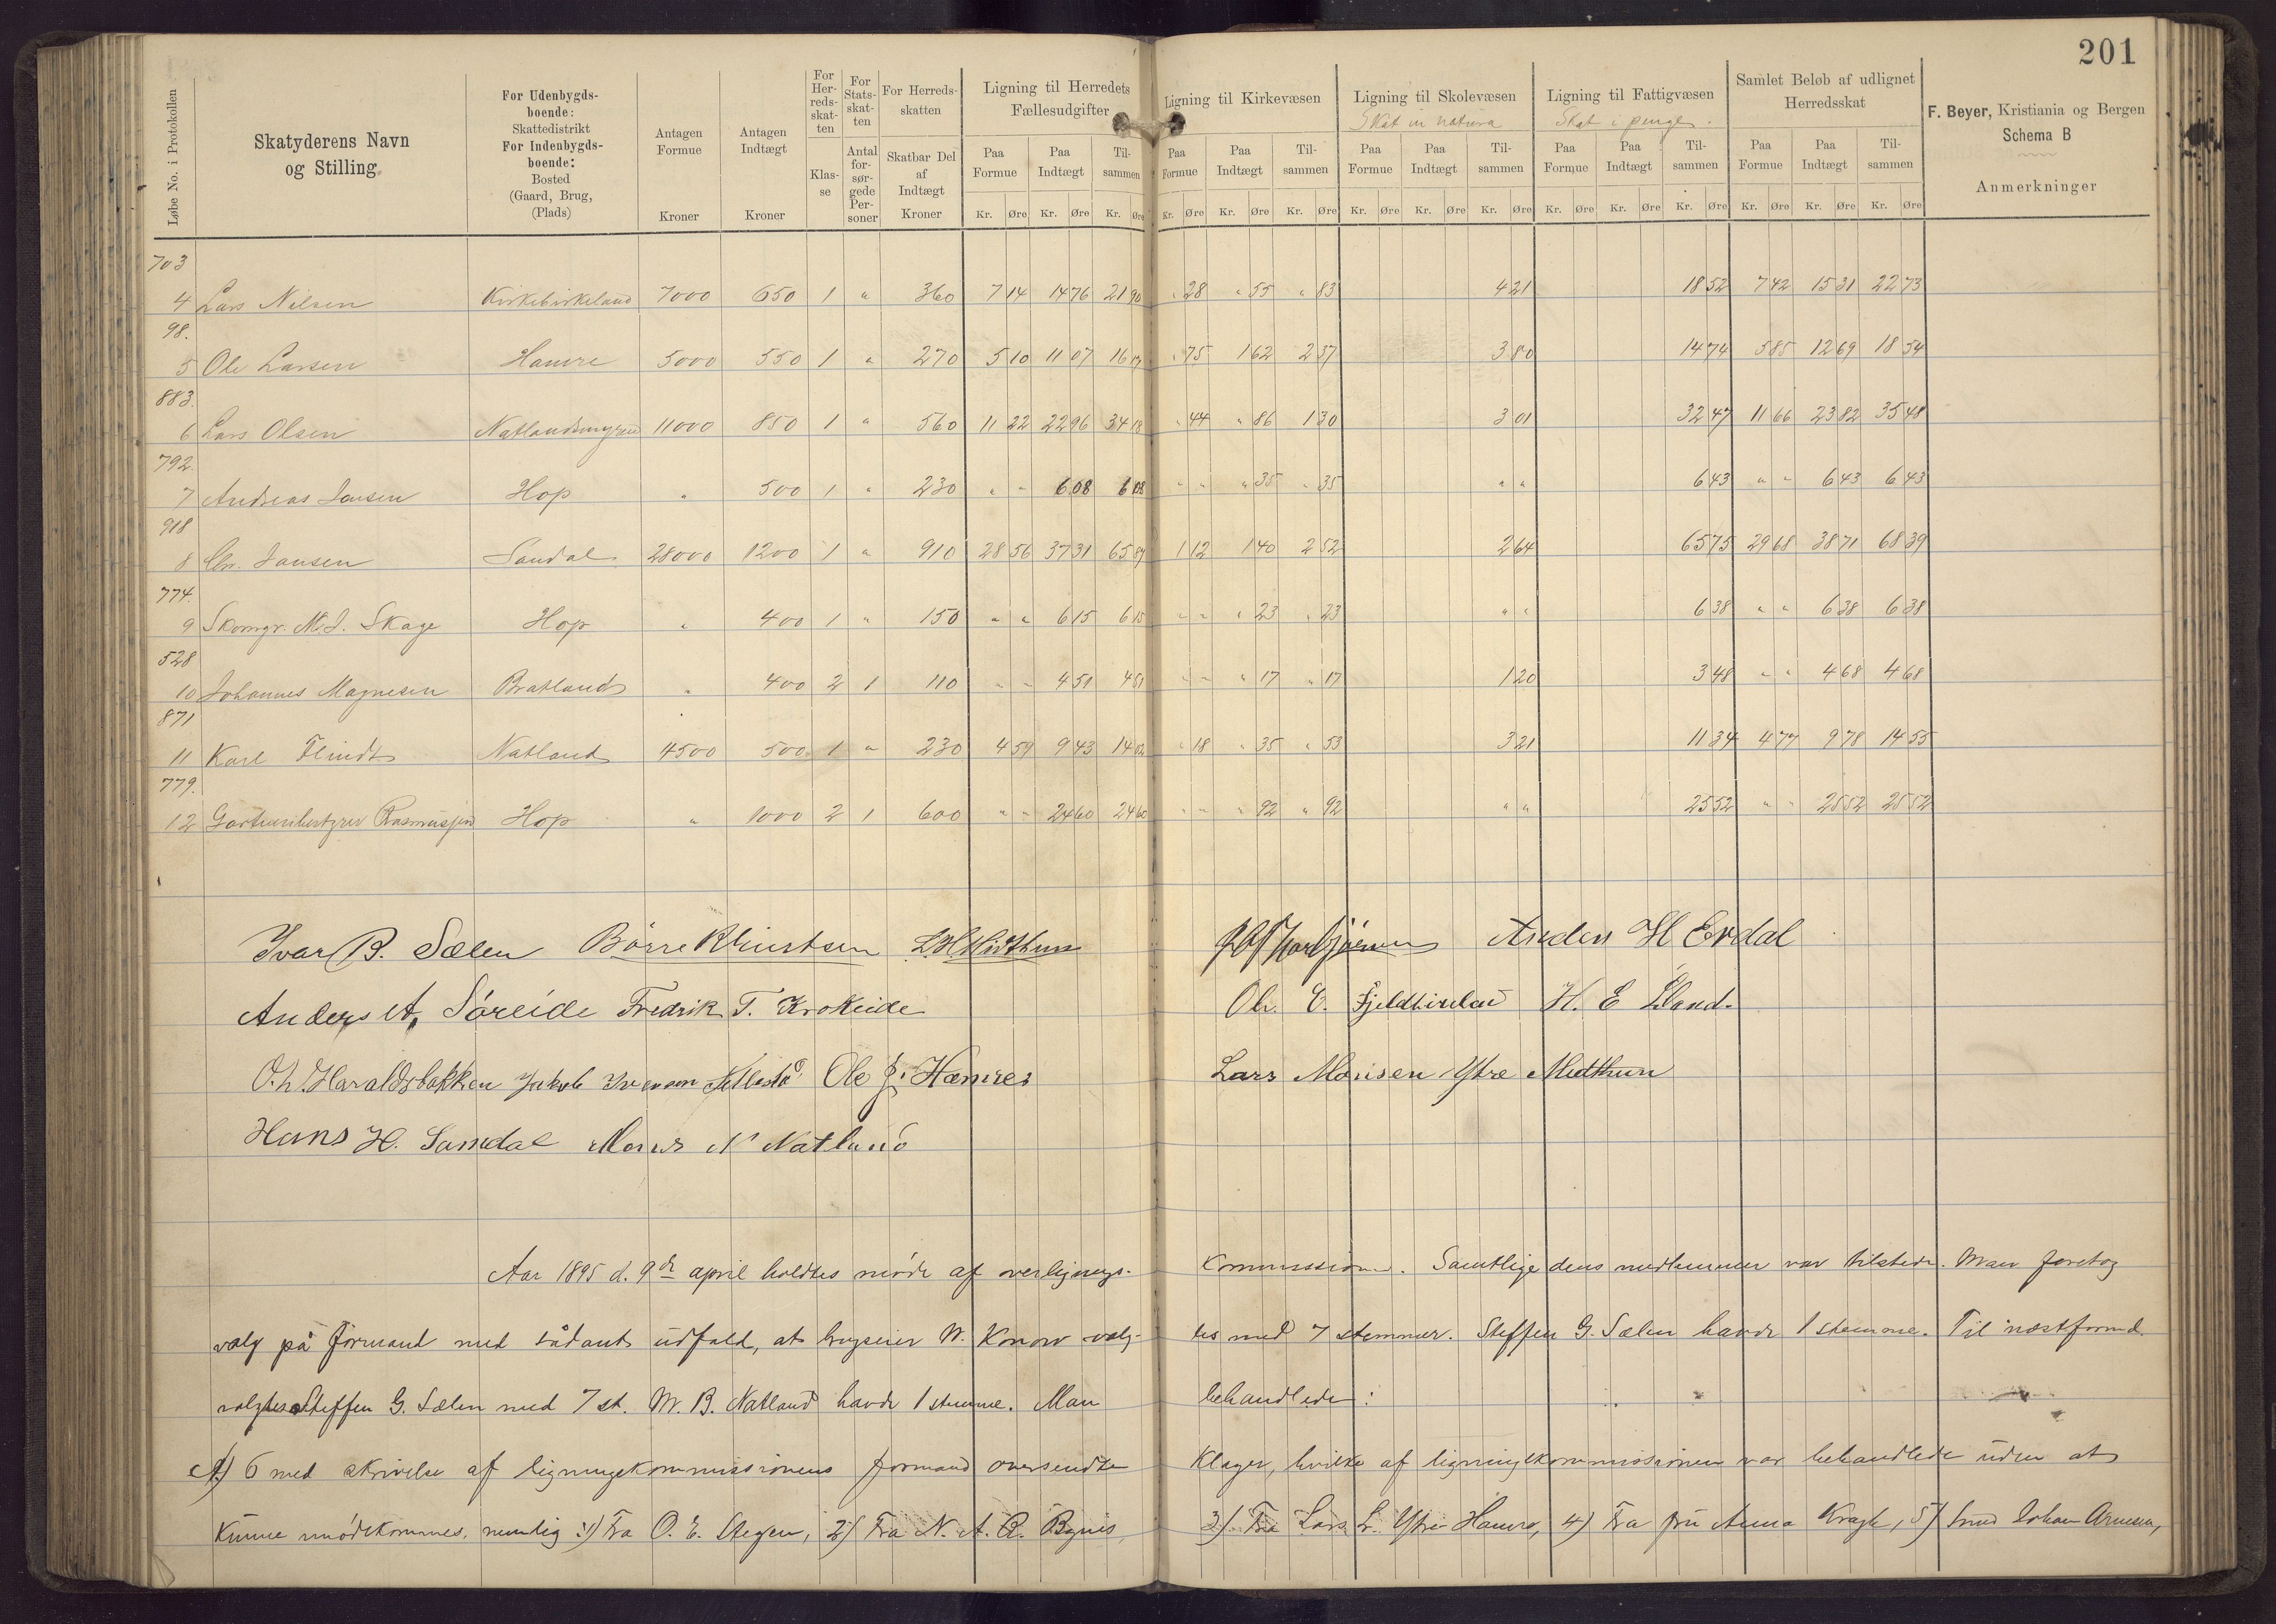 201
Løbe No. i Protokollen
Skatyderens Navn og Stilling.
For Udenbygds-boende: Skattedistrikt For Indenbygds-boende: Bosted (Gaard, Brug, (Plads)
Antagen Formue Kroner
Antagen Indtægt Kroner
For Herreds-skatten Klas-se
For Stats-skatten Antal for-sør-gede Per-soner
For Herreds-skatten Skatbar Del af Indtægt Kroner
Ligning til Herredets Fællesudgifter
Ligning til Kirkevæsen
Ligning til Skolevæsen
Skat in natura
Ligning til Fattigvæsen
Skat i penger.
Samlet Beløb af udlignet Herredsskat
F. Beyer, Kristiania og Bergen
Schema B
Anmerkninger
Paa Formue Paa Indtægt Til-sammen Paa Formue Paa Indtægt Til-sammen Paa Formue Paa Indtægt Til-sammen Paa Formue Paa Indtægt Til-sammen Paa Formue Paa Indtægt Til-sammen
Kr. Øre Kr. Øre Kr. Øre Kr. Øre Kr. Øre Kr. Øre Kr. Øre Kr. Øre Kr. Øre Kr. Øre Kr. Øre Kr. Øre Kr. Øre Kr. Øre Kr. Øre
703
4 Lars Nilsen Kirkebirkeland 7000 650 1 " 360 7 14 14 76 21 90 " 28 " 55 " 83 4 21 18 52 7 42 15 31 22 73
98.
5 Ole Larsen Hamre 5000 550 1 " 270 5 10 11 07 16 17 " 75 1 62 2 37 3 80 14 74 5 85 12 69 18 54
883.
6 Lars Olsen Natlandsmyren 11000 850 1 " 560 11 22 22 96 34 18 " 44 " 86 1 30 3 01 32 47 11 66 23 82 35 48
792.
7 Andreas Jansen Hop " 500 1 " 230 " " 6 08 6 08 " " " 35 " 35 " " 6 43 " " 6 43 6 43
918
8 Chr. Jansen Sandal 28000 1200 1 " 910 28 56 37 31 65 87 1 12 1 40 2 52 2 64 65 75 29 68 38 71 68 39
774.
9 Skomgr. M. J. Skage Hop " 400 1 " 150 " " 6 15 6 15 " " " 23 " 23 " " 6 38 " " 6 38 6 38
528
10 Johannes Magnesen Bratland " 400 2 1 110 " " 4 51 4 51 " " " 17 " 17 1 20 3 48 " " 4 68 4 68
871
11 Karl Flindt Natland 4500 500 1 " 230 4 59 9 43 14 02 " 18 " 35 " 53 3 21 11 34 4 77 9 78 14 55
779.
12 Rasmussen Hop " 1000 2 1 600 " " 24 60 24 60 " " " 92 " 92 " " 25 52 " " 25 52 25 52
Ivar B. Sælen Børre Knutsen L. H. Midthun Anders H Erdal
Anders A. Søreide Fredrik T. Krokeide Ole E. Fjeldbirkeland H. E. Øland
O. L. Haraldsbakken Jakob Iversen Ole J. Hamre Lars Monsen Ytre Midthun
Hans H. Sandal Mons N Natland
Aar 1895 d. 9de april holdtes møde af overlignings- kommissionen. Samtlige dens medlemmer var tilstede. Man foretog
valg på formand med sådant udfald, at brugseier W. Konow valg- tes med 7 stemmer. Steffen G. Sælen havde 1 stemme. Til næstformd.
valgtes Steffen G. Sælen med 7 st. M. B. Natland havde 1 stemme. Man behandlede:
A) 6 med skrivelse af ligningskommissionens formand oversendte klager, hvilke af ligningskommissionen var behandlede uden at
kunne imødekommes, nemlig: 1) Fra O. E. Stegen, 2) Fra N. A. R. 3) Fra Lars L. Ytre Hamre, 4) Fra fru Anna Kragh, 5) Smed Johan Arnesen,